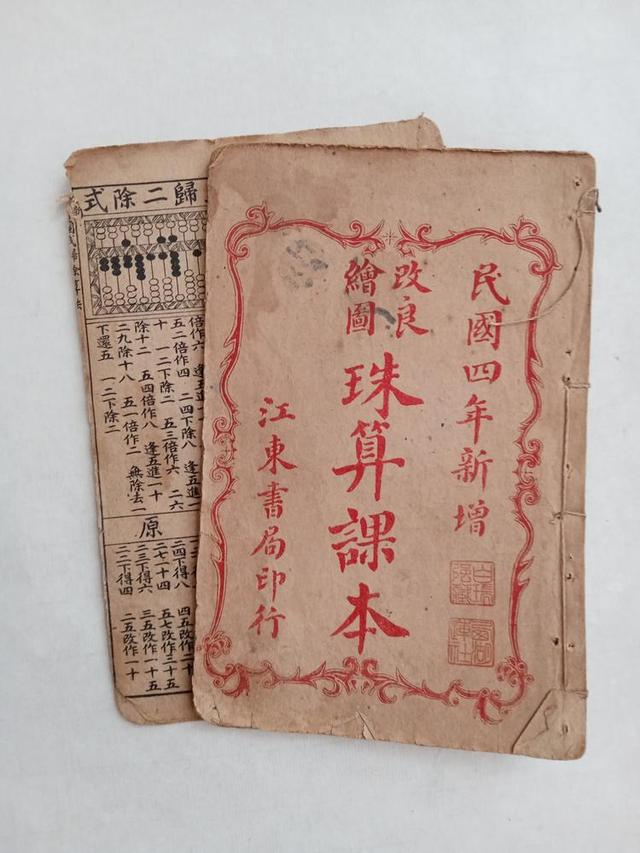 民國四年新增
改良
繪圖
珠算課本
江東書局印行
歸二除式
倍作六 逢五進一
五二倍作四 二四下除八 逢五進一
十 一二下除二 五三倍作六 二六
除十二 五四倍作八 逢五進一十
二九除十八 五一倍作二 無除去一
下還五 一二下除二
原
二四下得八 四五改作二十
二七一十四 五七改作三十五
二三下得六 三五改作一十五
二二下得四 二五改作一十